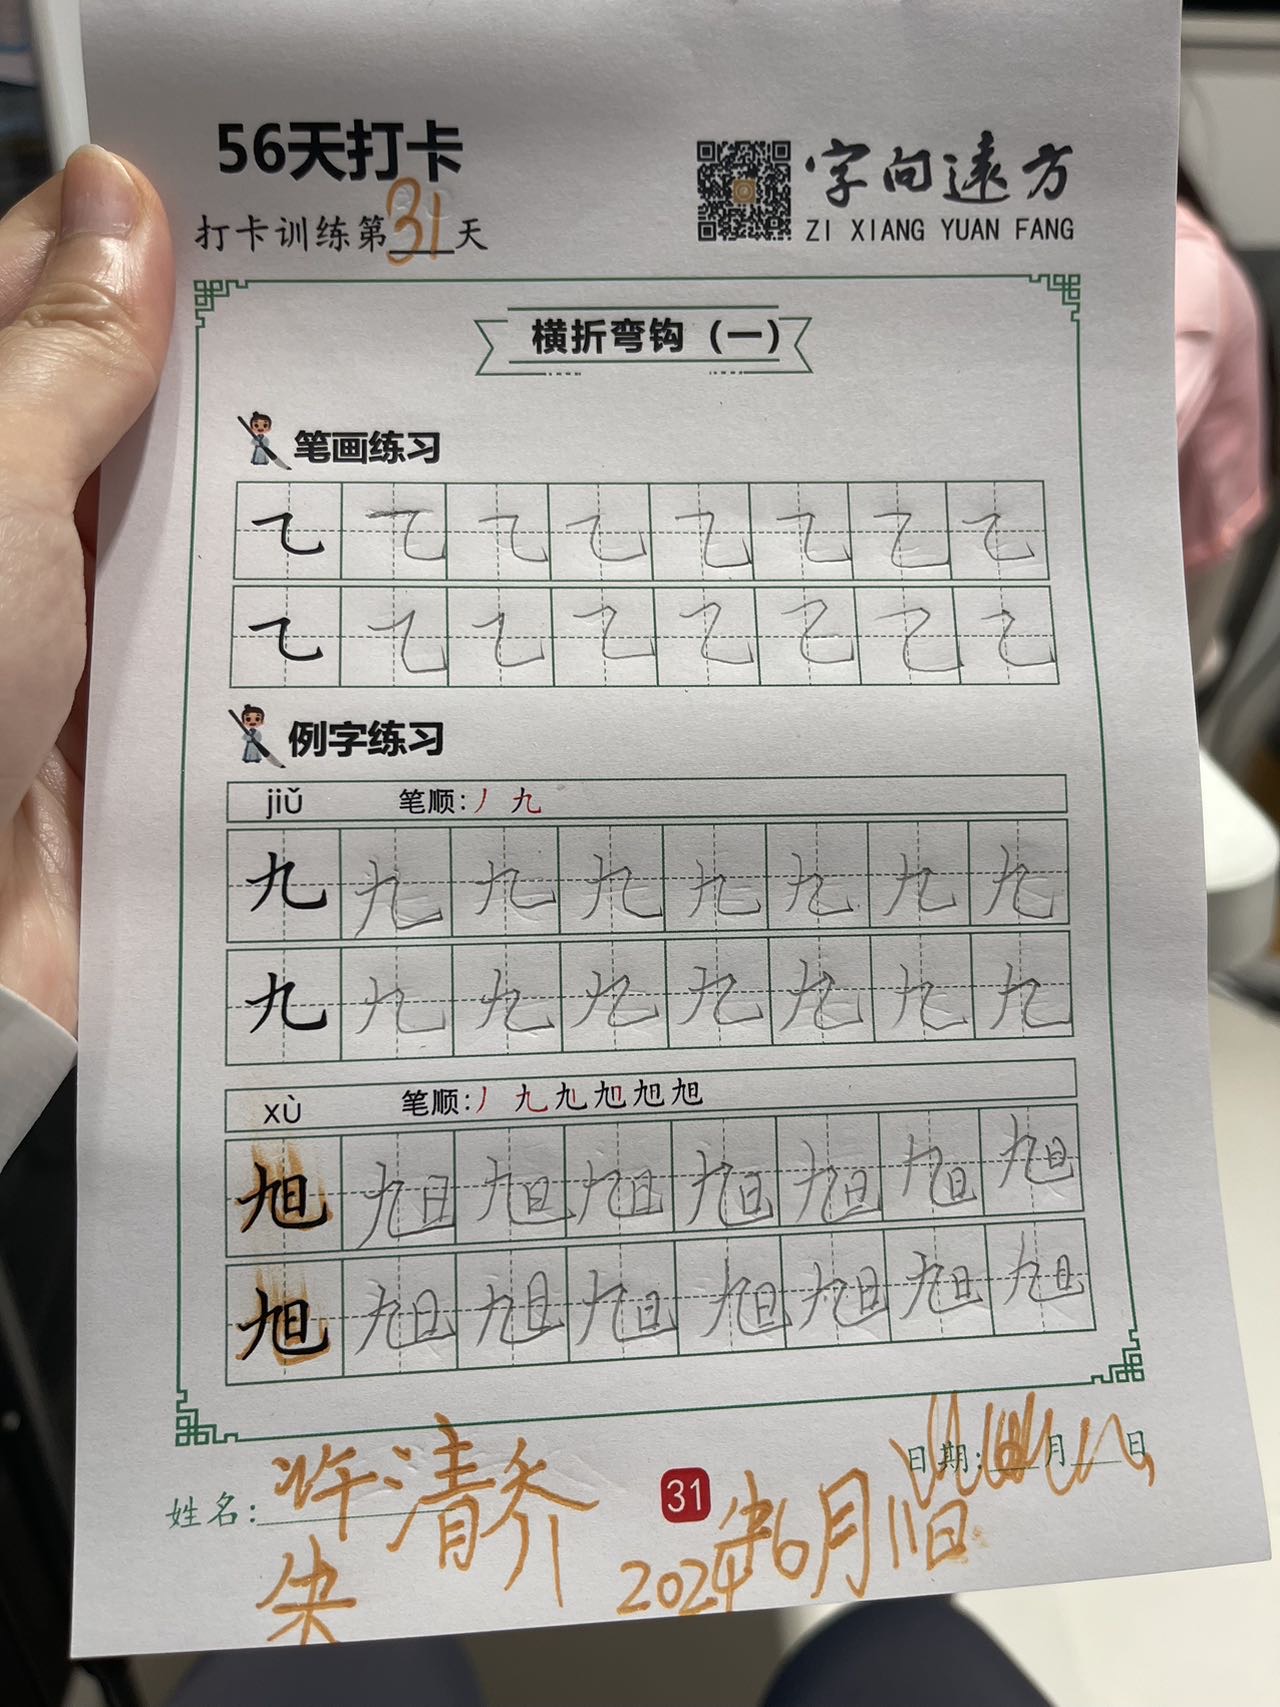 56天打卡
打卡训练第31天
字向遠方
ZI XIANG YUAN FANG
横折弯钩（一）
笔画练习
㇈ ㇈ ㇈ ㇈ ㇈ ㇈ ㇈ ㇈
㇈ ㇈ ㇈ ㇈ ㇈ ㇈ ㇈ ㇈
例字练习
jiǔ 笔顺：丿 九
九 九 九 九 九 九 九 九
九 九 九 九 九 九 九 九
xù 笔顺：丿 九 旭 旭
旭 旭 旭 旭 旭 旭 旭 旭
旭 旭 旭 旭 旭 旭 旭 旭
姓名：许清乔
31
日期： 月 日
2024年6月11日